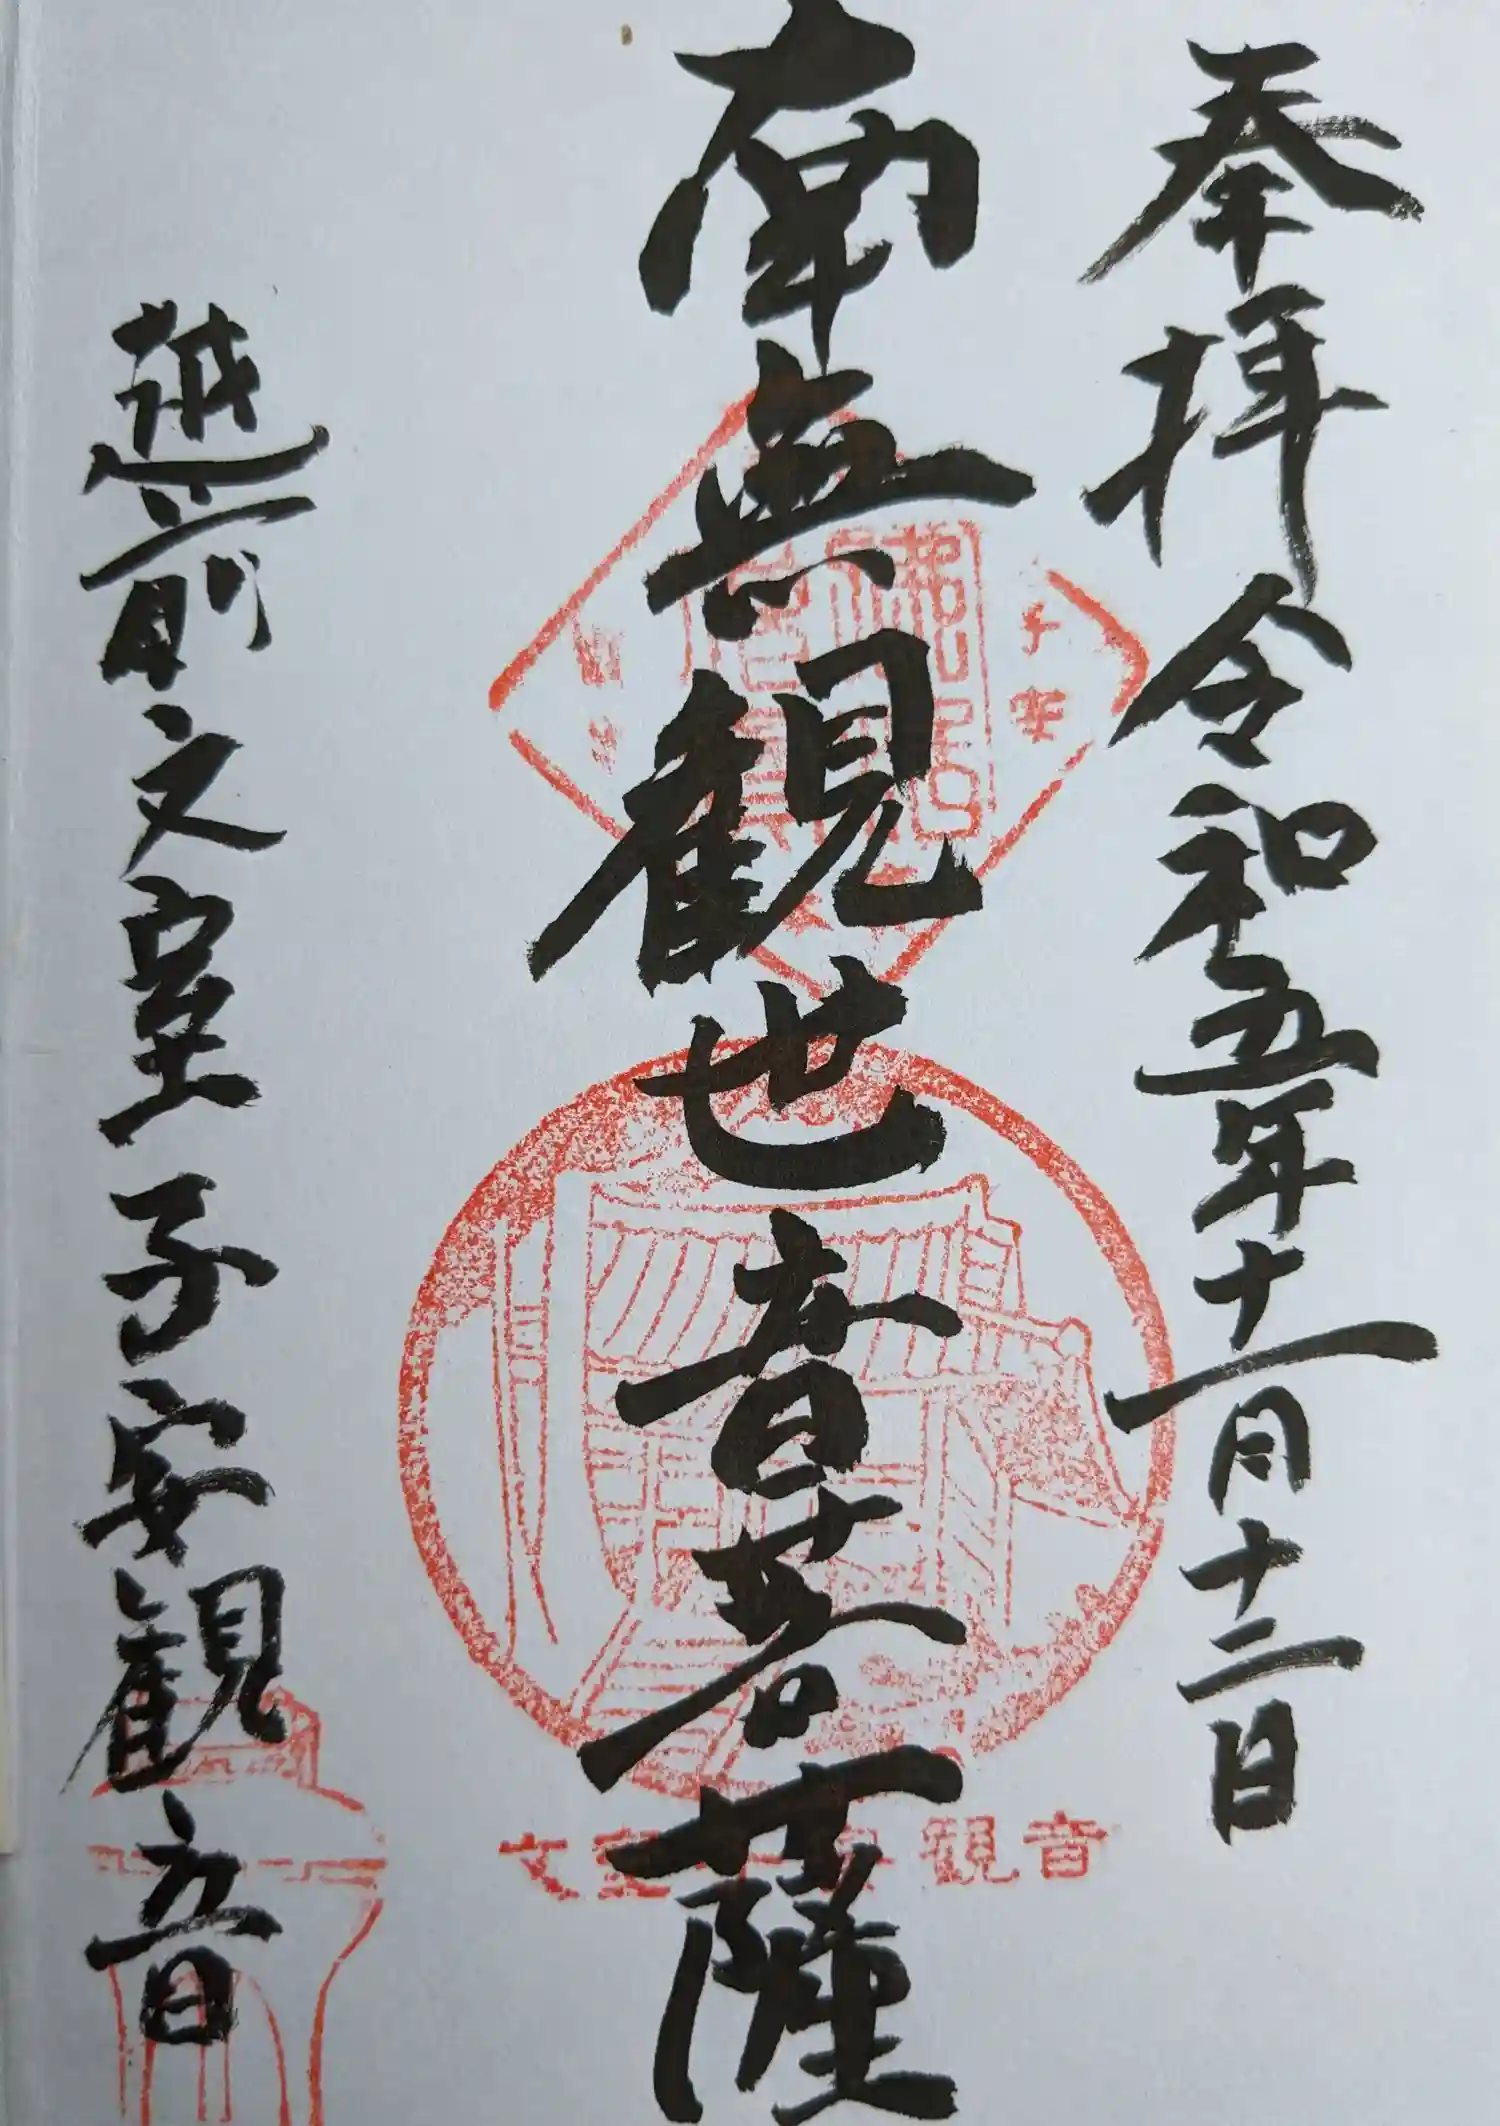 奉拝 令和五年十一月十二日
南無観世音菩薩
越前文室子安観音
子安
文室子安観音